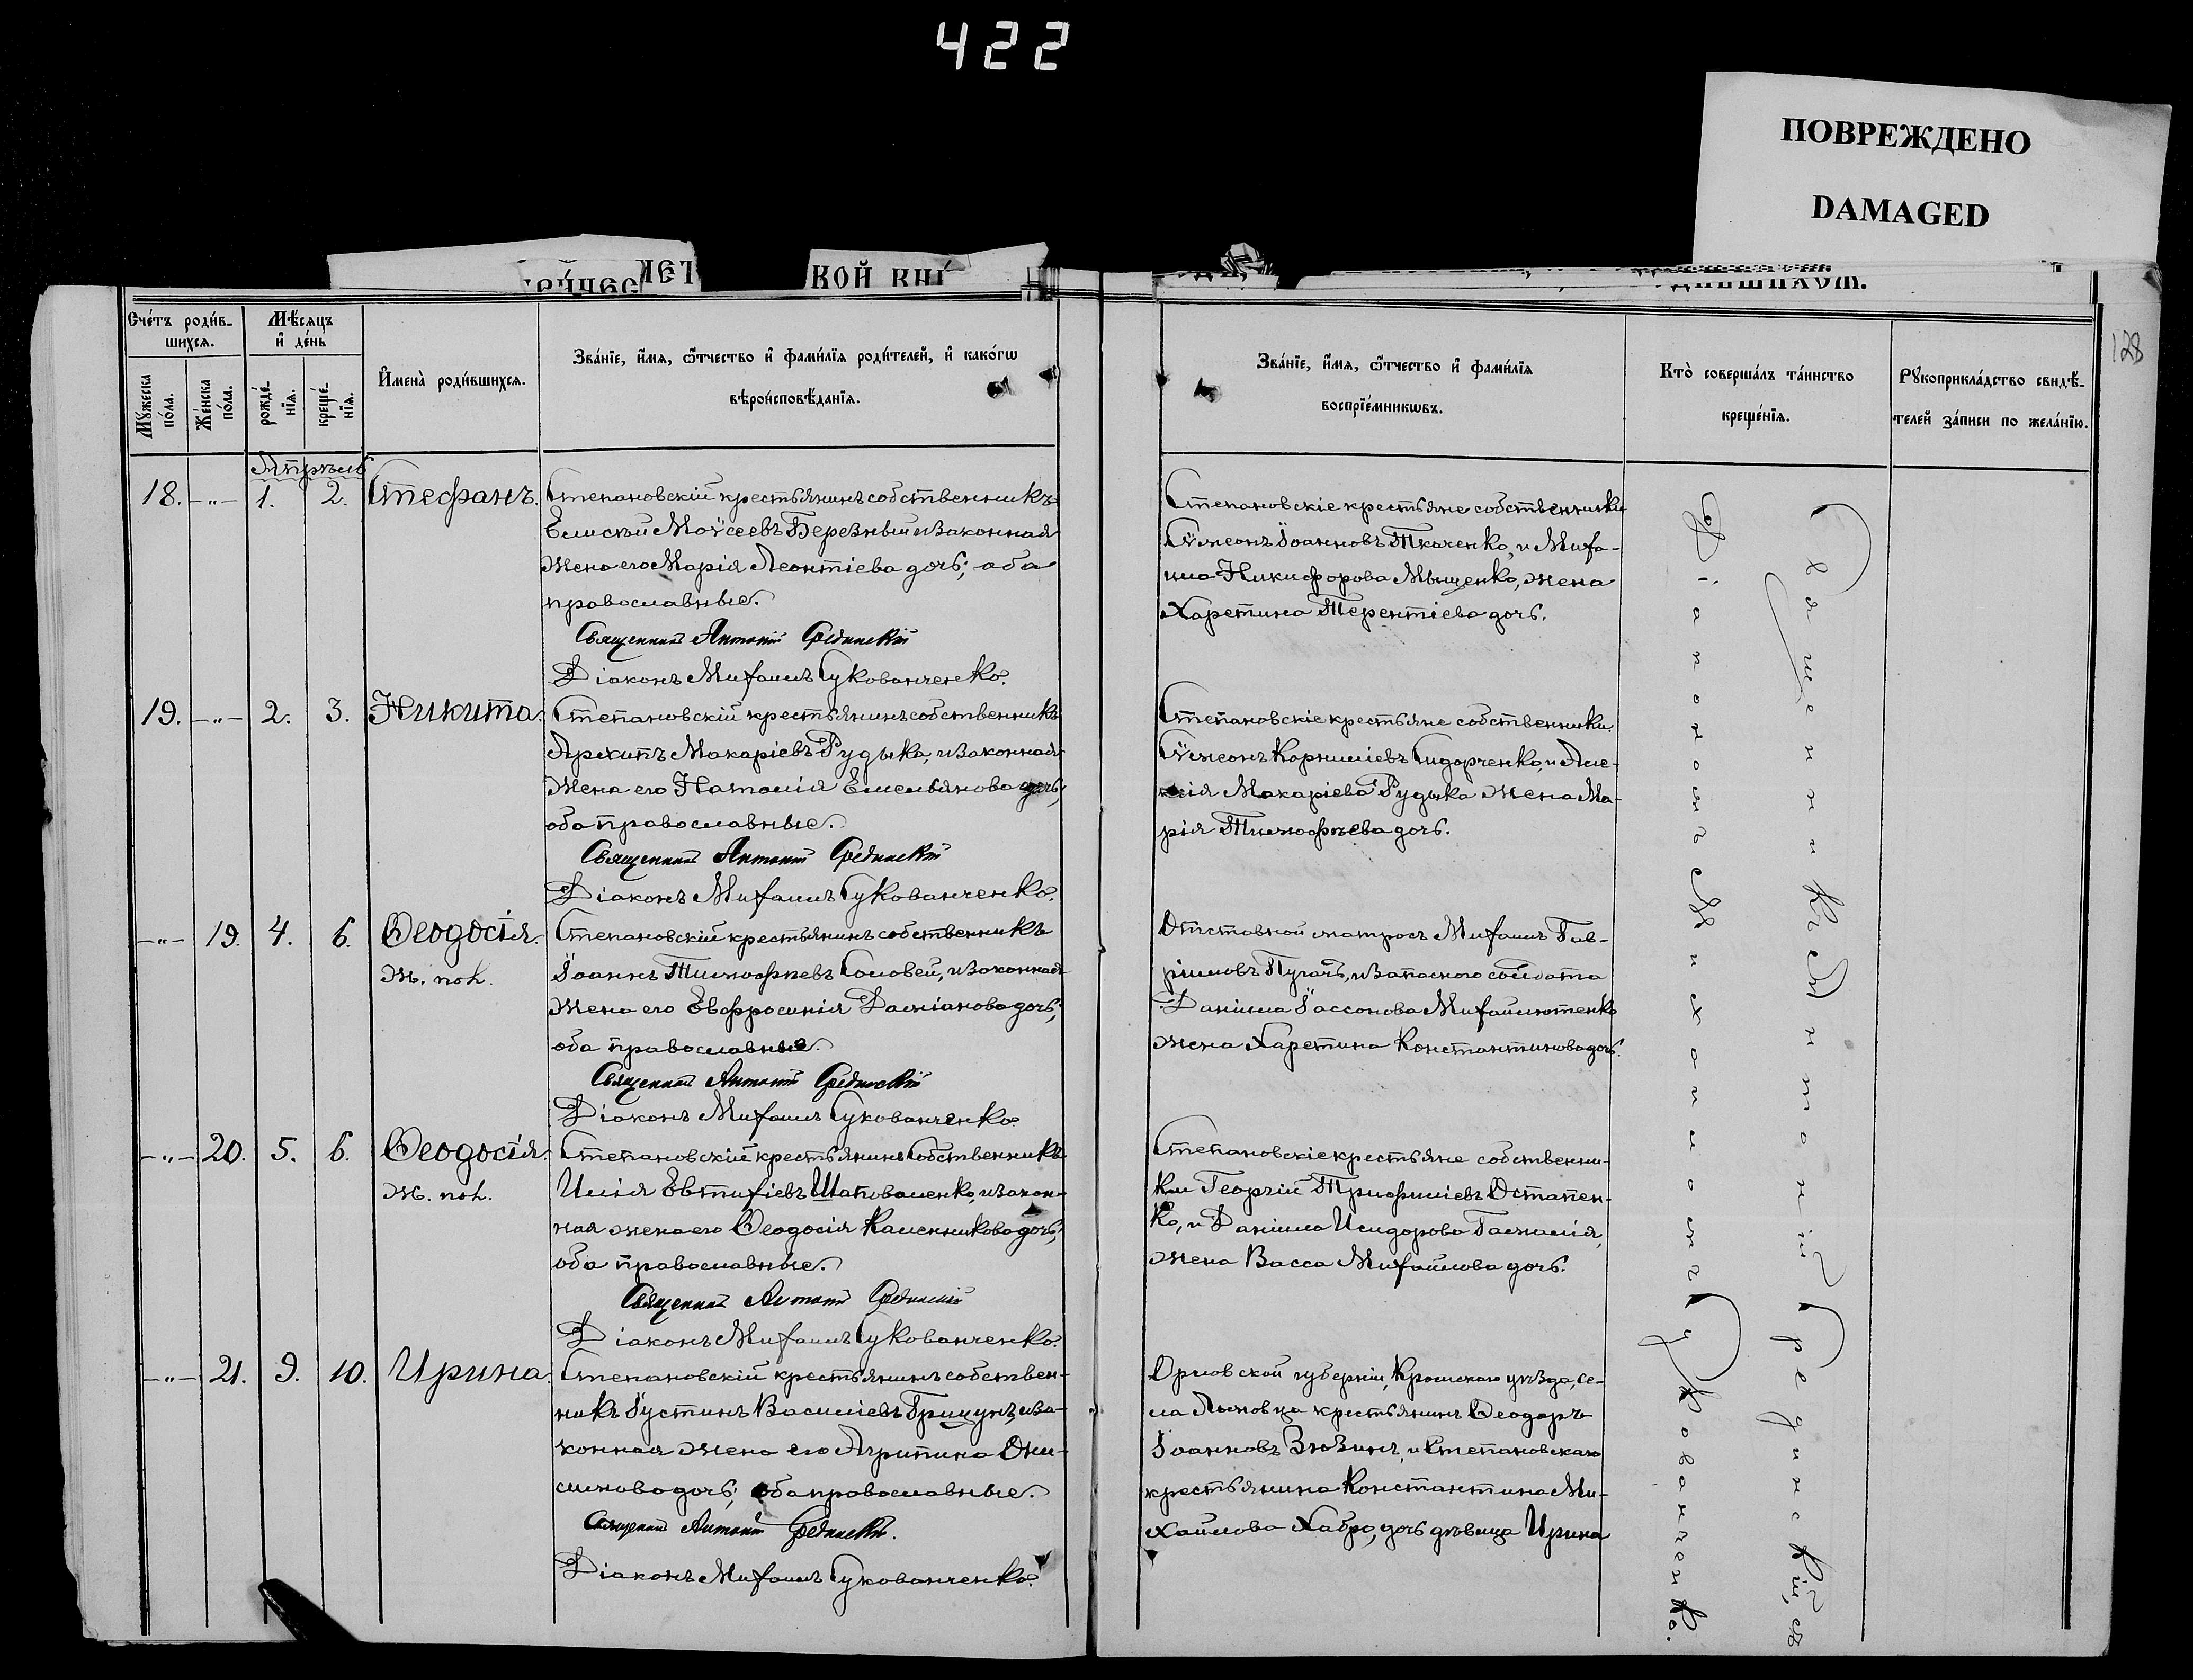 422
ПОВРЕЖДЕНО
DAMAGED
КОЙ КНИ
128
Счéтъ роди́в-
шихся.
Мѣ́сяцъ
и҆ де́нь
И҆мена̀ роди́вшихся.
Зва́нїе, и҆́мя, ѻ҆́тчество и҆ фами́лїя роди́телей, и҆ како́гѡ
вѣроисповѣ́данїя.
Мꙋ́жеска
по́ла.
Же́нска
по́ла.
рожде́-
нїя.
креще́-
нїя.
Зва́нїе, и҆́мя, ѻ҆́тчество и҆ фами́лїя
воспрїе́мникѡвъ.
Кто̀ соверша́лъ та́инство
креще́нїя.
Рꙋкоприкла́дство свидѣ́-
телей за́писи по жела́нїю.
Апрѣль
18. -"- 1. 2. Стефанъ.
Степановскій крестьянинъ собственникъ
Елисѣй Моѵсеевъ Березный и законная
жена его Марія Леонтіева дочь; оба
православные.
Священникъ Антоній Срединскій
Діаконъ Михаилъ Сукованченко.
Степановскіе крестьяне собственники
Сѵмеонъ Іоанновъ Ткаченко, и Михаи-
ила Никифорова Мыщенко, жена
Харетина Терентіева дочь.
19. -"- 2. 3. Никита.
Степановскій крестьянинъ собственникъ
Архипъ Макаріевъ Рудыка, и законная
жена его Наталія Емельянова дочь;
оба православные.
Священникъ Антоній Срединскій
Діаконъ Михаилъ Сукованченко.
Степановскіе крестьяне собственники
Сѵмеонъ Корниліевъ Сидорченко, и Але-
ксія Макаріева Рудыка жена Ма-
рія Тимофѣева дочь.
-"- 19. 4. 6. Ѳеодосія.
ж. пол.
Степановскій крестьянинъ собственникъ
Іоаннъ Тимофеевъ Соловей, и законная
жена его Евфросинія Даміанова дочь;
оба православные.
Священникъ Антоній Срединскій
Діаконъ Михаилъ Сукованченко.
Отставной матросъ Михаилъ Гав-
ріиловъ Пугачъ, и запаснаго солдата
Даніила Іассонова Михайлютенко
жена Харетина Константинова дочь.
-"- 20. 5. 6. Ѳеодосія.
ж. пол.
Степановскій крестьянинъ собственникъ
Илія Евтихіевъ Шаповаленко, и закон-
ная жена его Ѳеодосія Каленикова дочь;
оба православные.
Священникъ Антоній Срединскій
Діаконъ Михаилъ Сукованченко.
Степановскіе крестьяне собственни-
ки Георгій Трифиліевъ Остапен-
ко, и Даніила Исидорова Гамалія,
жена Васса Михайлова дочь.
-"- 21. 9. 10. Ирина.
Степановскій крестьянинъ собствен-
никъ Іустинъ Василіевъ Грицунъ, и за-
конная жена его Агрипина Они-
симова дочь; оба православные.
Священникъ Антоній Срединскій.
Діаконъ Михаилъ Сукованченко.
Орловской губерніи, Кромскаго уѣзда, се-
ла крестьянинъ Ѳеодоръ
Іоанновъ Зюзинъ, и Степановскаго
крестьянина Константина Ми-
хайлова Хабро, дочь дѣвица Ирина
Священникъ Антоній Срединскій, съ
Діакономъ Михаиломъ Сукованченко.